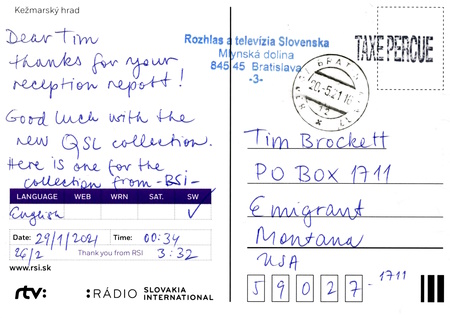 Kežmarský hrad
Dear Tim
thanks for your
reception report!
Good luck with the
new QSL collection.
Here is one for the
collection from -RSI-
LANGUAGE WEB WRN SAT. SW
English ✓
Date: 29/1/2021 Time: 00:34
26/2 Thank you from RSI 3:32
www.rsi.sk
rtv: :RÁDIO SLOVAKIA
INTERNATIONAL
Rozhlas a televízia Slovenska
Mlynská dolina
845 45 Bratislava
-3-
TAXE PERCUE
20.-5.21
Tim Brockett
PO Box 1711
Emigrant
Montana
USA
59027-1711